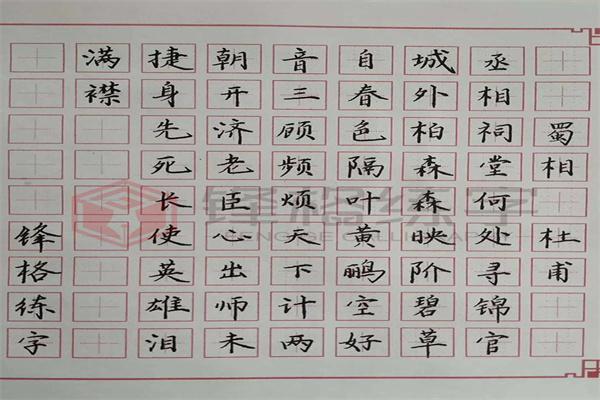 蜀相 杜甫
丞相祠堂何处寻锦官
城外柏森森映阶碧草
自春色隔叶黄鹂空好
音三顾频烦天下计两
朝开济老臣心出师未
捷身先死长使英雄泪
满襟
锋格练字
锋格练字